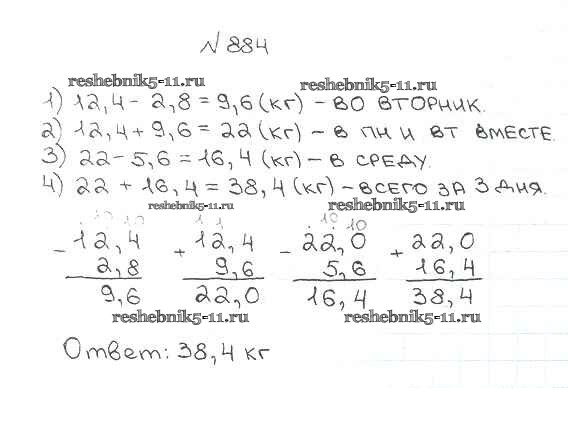 № 884
reshebnik5-11.ru reshebnik5-11.ru
1) 12,4 - 2,8 = 9,6 (кг) - во вторник.
2) 12,4 + 9,6 = 22 (кг) - в пн и вт вместе.
3) 22 - 5,6 = 16,4 (кг) - в среду.
4) 22 + 16,4 = 38,4 (кг) - всего за 3 дня.
reshebnik5-11.ru reshebnik5-11.ru
10 10 1 1 10 10
- 12,4 + 12,4 - 22,0 + 22,0
2,8 9,6 5,6 16,4
9,6 22,0 16,4 38,4
reshebnik5-11.ru reshebnik5-11.ru
Ответ: 38,4 кг